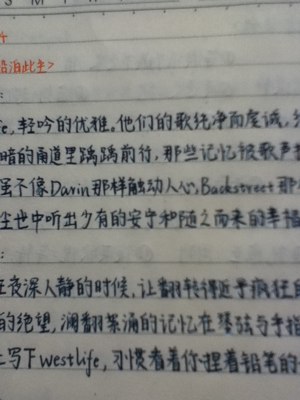 泊此生>
:
fe,轻吟的优雅。他们的歌纯净而虔诚,
暗的甬道里踽踽前行,那些记忆被歌声
虽不像Darin那样触动人心,Backstreet那
尘世中听出少有的安宁和随之而来的幸福
:
在夜深人静的时候,让翻转得近乎疯狂
的绝望,澜翻泉涌的记忆在琴弦与手指
上写下westlife,习惯看着你捏着铅笔的